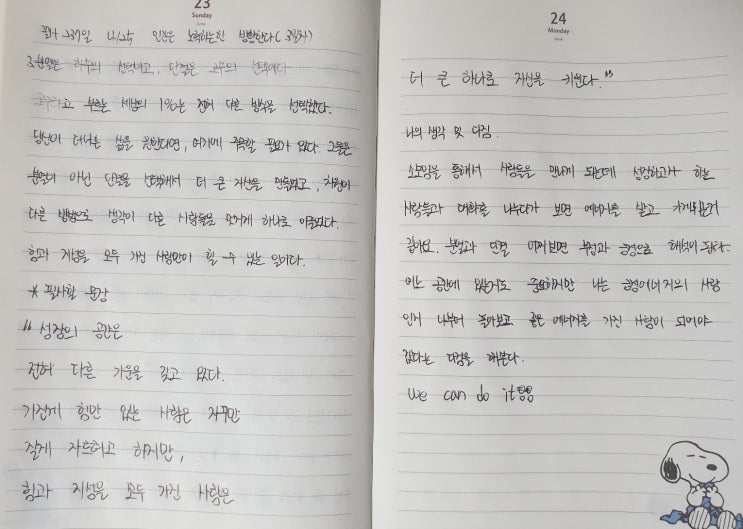 23
Sunday
June
필사 237일 니체 인간은 노력하는한 방황한다 (3일차)
3. 분열은 하수의 선택이고, 단결은 고수의 선택이다.
고수라고 부르는 세상의 1%는 전혀 다른 방식을 선택했다.
당신이 더나은 삶을 꿈꾼다면, 여기에 주목할 필요가 있다. 그들은
분열이 아닌 단결을 선택해서 더 큰 자신을 만들었고, 차원이
다른 방법으로 생각이 다른 사람들을 멋지게 하나로 이끌었다.
힘과 지성을 모두 가진 사람만이 할 수 있는 일이다.
* 필사할 문장
"성장의 공간은
전혀 다른 기운을 갖고 있다.
가진게 힘만 있는 사람은 자꾸만
잘게 자르려고 하지만,
힘과 지성을 모두 가진 사람은
24
Monday
June
더 큰 하나로 자신을 키운다."
나의 생각 및 다짐.
소모임을 통해서 사람들을 만나게 되는데 성장하고자 하는
사람들과 대화를 나누다가 보면 에너지를 받고 가게되는것
같아요. 분열과 단결 어찌보면 부정과 긍정으로 해석이 된다.
어느 공간에 있는거도 중요하지만 나는 긍정에너지의 사람
인지 나부터 돌아보고 좋은 에너지를 가진 사람이 되어야
겠다는 다짐을 해본다.
we can do it